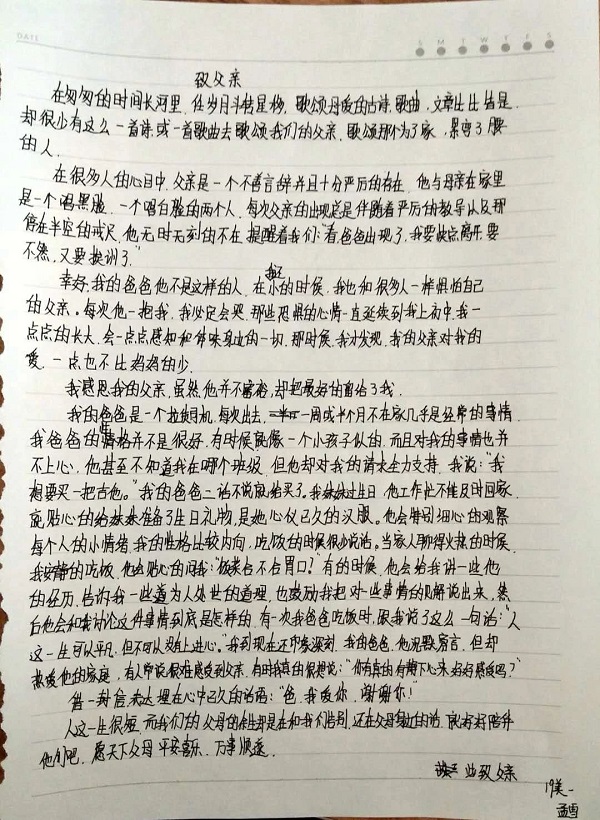 DATE
S M T W T F S
致父亲
在匆匆的时间长河里,任岁月斗转星物,歌颂母爱的古诗,歌曲,文章比比皆是,
却很少有这么一首诗或一首歌曲去歌颂我们的父亲,歌颂那个为了家,累弯了腰
的人。
在很多人的心目中,父亲是一个不善言辞并且十分严厉的存在,他与母亲在家里
是一个唱黑脸,一个唱白脸的两个人,每次父亲的出现总是伴随着严厉的教导以及那
停在半空的戒尺,他无时无刻的不在提醒着我们:"看,爸爸出现了,我要快点离开,要
不然,又要换训了。"
幸好,我的爸爸他不是这样的人,在小的时候,我也和很多人一样惧怕自己
的父亲。每次他一抱我,我必定会哭,那些恐惧的心情一直延续到我上初中,我一
点点的长大,会一点点感知和体味身边的一切,那时候,我才发现,我的父亲对我的
爱,一点也不比妈妈的少。
我感恩我的父亲,虽然他并不富裕,却把最好的留给了我。
我的爸爸是一个拉货司机,每次出去,一周或半个月不在家几乎是经常的事情,
我爸爸的脾格并不是很好,有时候就像一个小孩子似的,而且对我的事情也并
不上心,他甚至不知道我在哪个班级,但他却对我的请求全力支持,我说:"我
想要买一把吉他。"我的爸爸二话不说就给买了。我妹妹过生日,他工作忙不能及时回家,
就贴心的给妹妹准备了生日礼物,是她心仪已久的汉服。他会特别细心的观察
每个人的小情绪,我的性格比较内向,吃饭的时候很少说话。当家人聊得火热的时候,
我安静的吃饭,他会贴心的问我:"饭菜合不合胃口?"有的时候,他会给我讲一些他
的经历,告诉我一些道为人处世的道理,也鼓励我把对一些事情的见解说出来,然
后他会和我讨论这件事情到底是怎样的,有一次我爸爸吃饭时,跟我说了这么一句话:"人
这一生可以平凡,但不可以没有上进心。"我到现在还印象深刻,我的爸爸,他沉默寡言,但却
热爱他的家庭,有人常说很难感受到父亲,有时我真的很想说:"你有真的有静下心来,好好感受吗?"
借一封信表达埋在心中已久的话语:"爸,我爱你,谢谢你!"
人这一生很短,而我们的父母的余生却是在和我们告别,还在父母身边的话,就好好陪伴
他们吧,愿天下父母平安喜乐,万事顺遂。
此致父亲
19美一